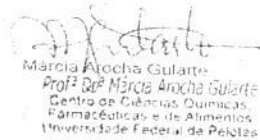 Márcia Arocha Gularte
Profª Drª Márcia Arocha Gularte
Centro de Ciências Químicas,
Farmacêuticas e de Alimentos
Universidade Federal de Pelotas